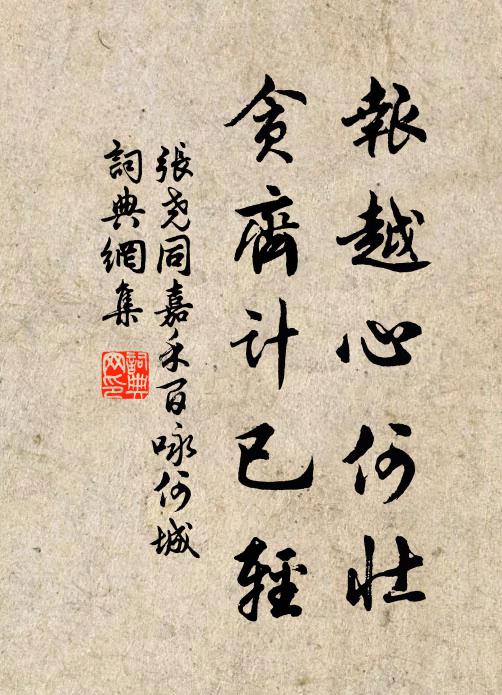 報越心何壯
貪齊計已輕
張堯同嘉禾百咏何城
詞典網集
詞典網印